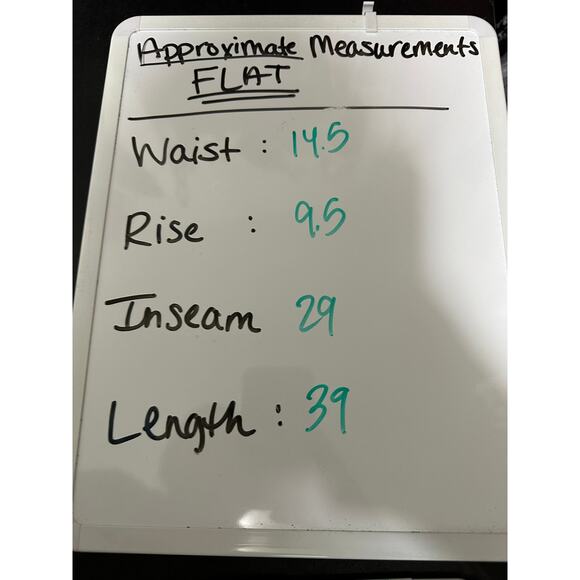 Approximate Measurements
FLAT
Waist : 14.5
Rise : 9.5
Inseam 29
Length : 39